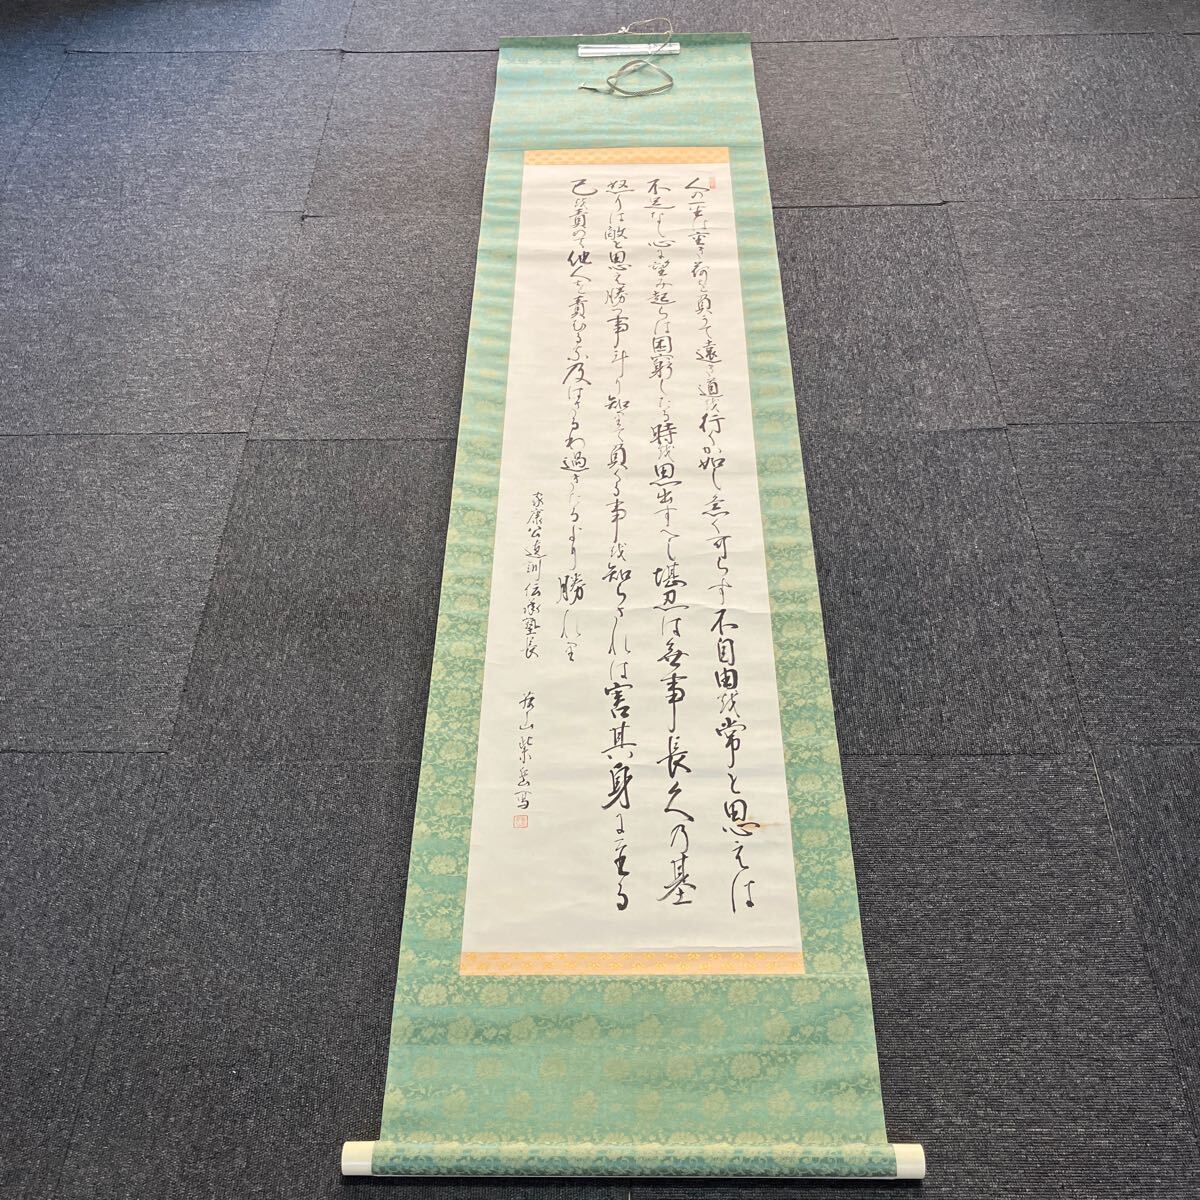 人の一生は重き荷を負うて遠き道を行くか如し急く可らす不自由を常と思えは
不足なし心に望み起らは困窮したる時を思出すへし堪忍は無事長久乃基
怒りは敵と思え勝つ事斗り知りて負くる事を知らされは害其身に至る
己を責めて他人を責むるな及はさるわ過きたるより勝れり
家康公遺訓伝承塾長
山紫岳写